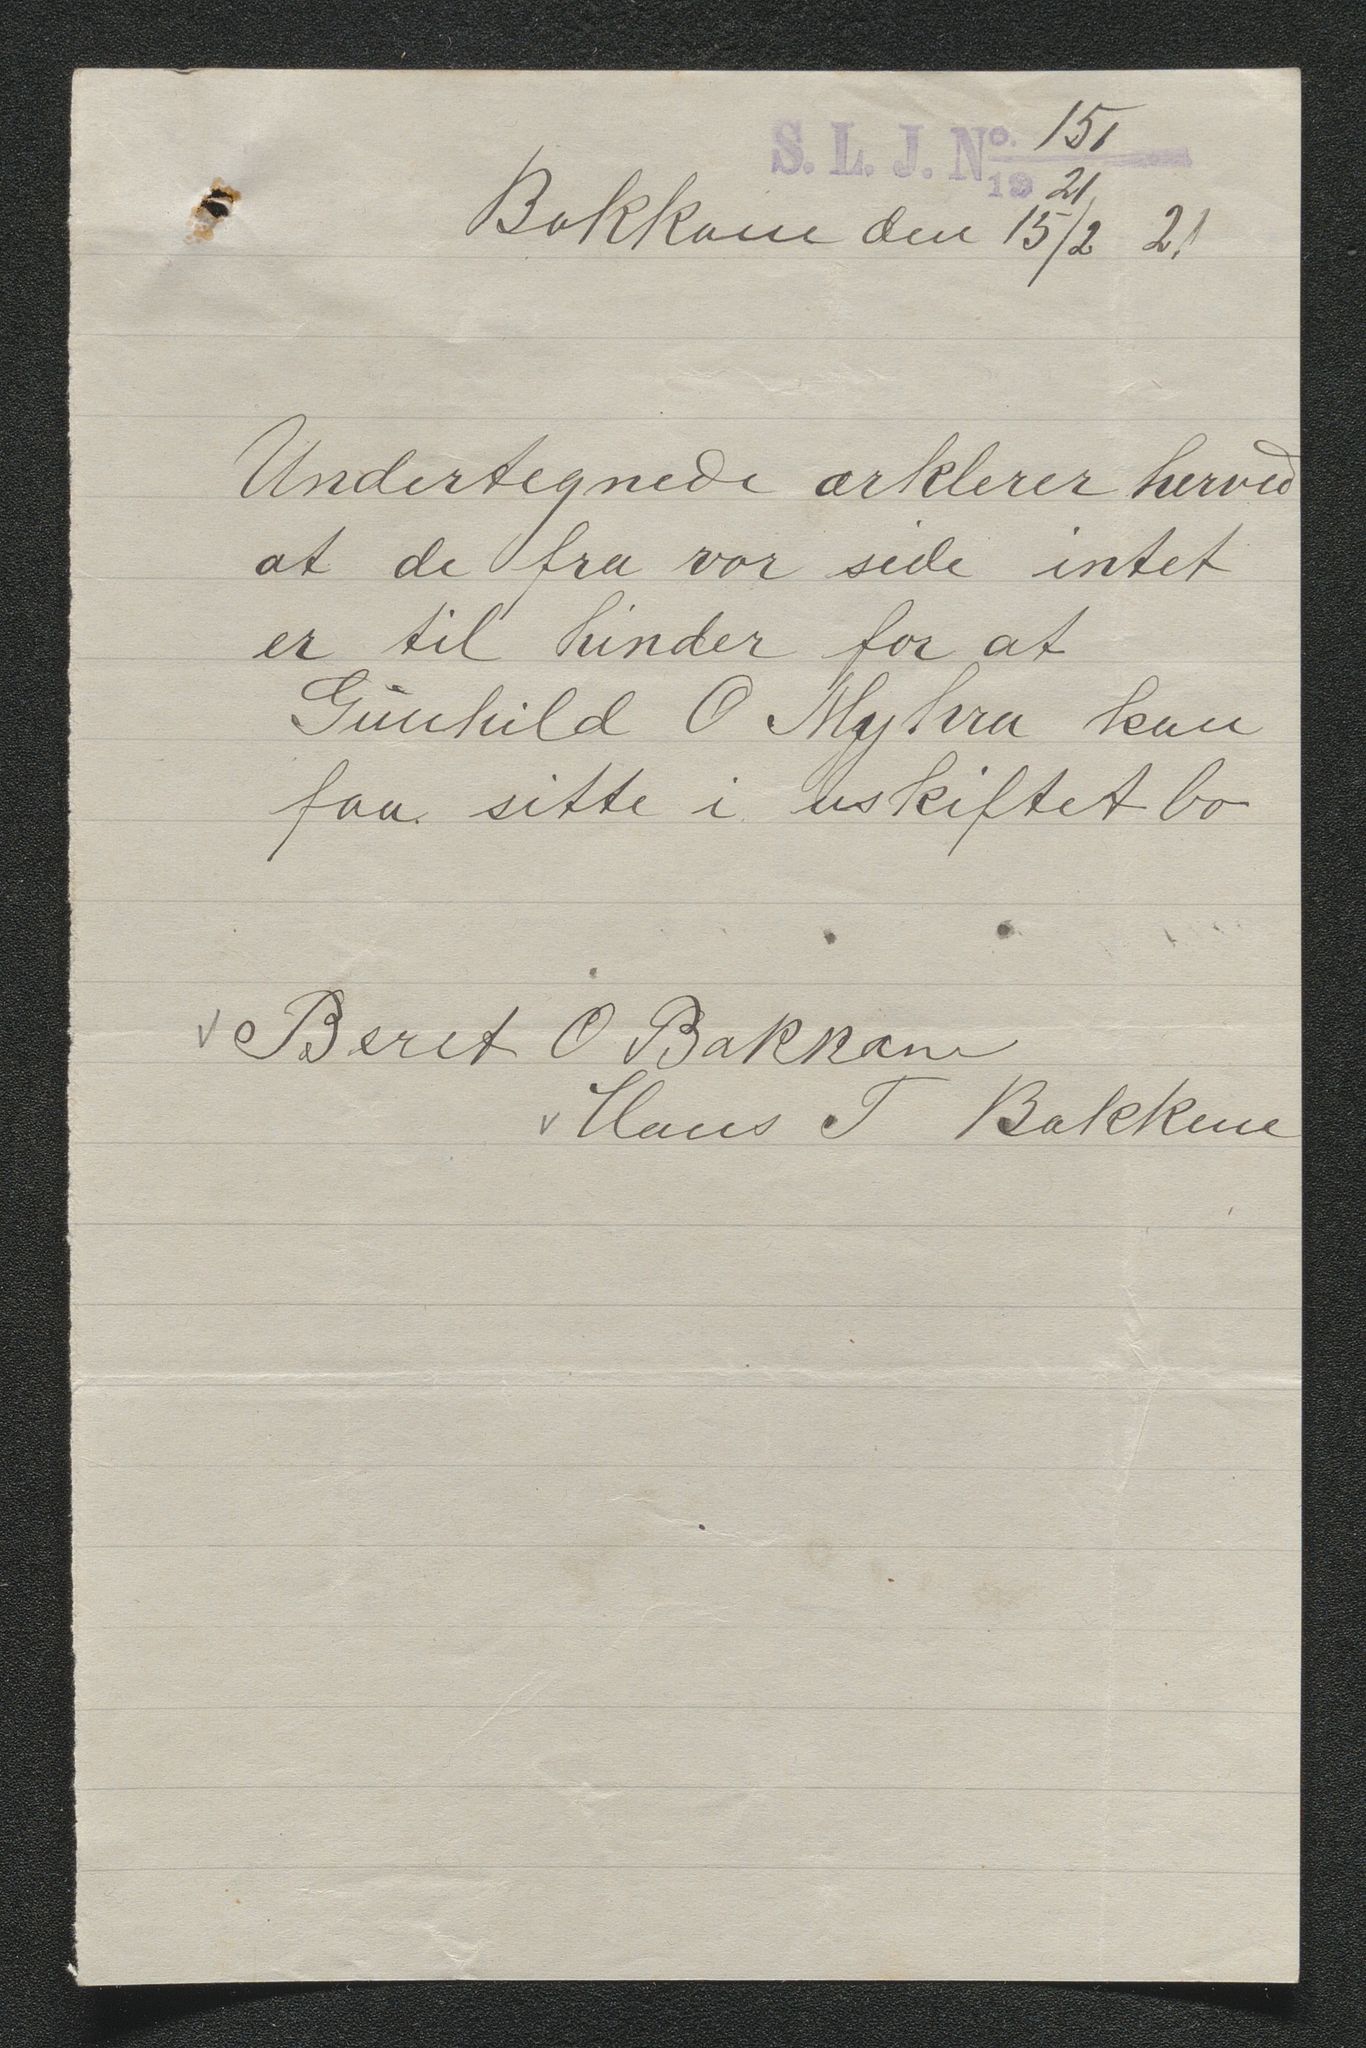 S. L. J. No. 151
1921
Bakkane den 15/2 21
Undertegnede ærklerer herved
at de fra vor side intet
er til hinder for at
Gunhild O Myhra kan
faa sitte i uskiftet bo
Beret O Bakkane
Hans T Bakkene